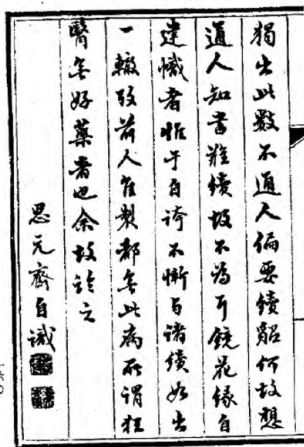 獨出此數不通人偏要續貂何故想
通人知書難續故不為耳鏡花緣自
建幟者惟于自誇不慚与諸續如出
一轍前人佳製都無此病所謂狂
醫無好藥者也余故論之
思元齋自識